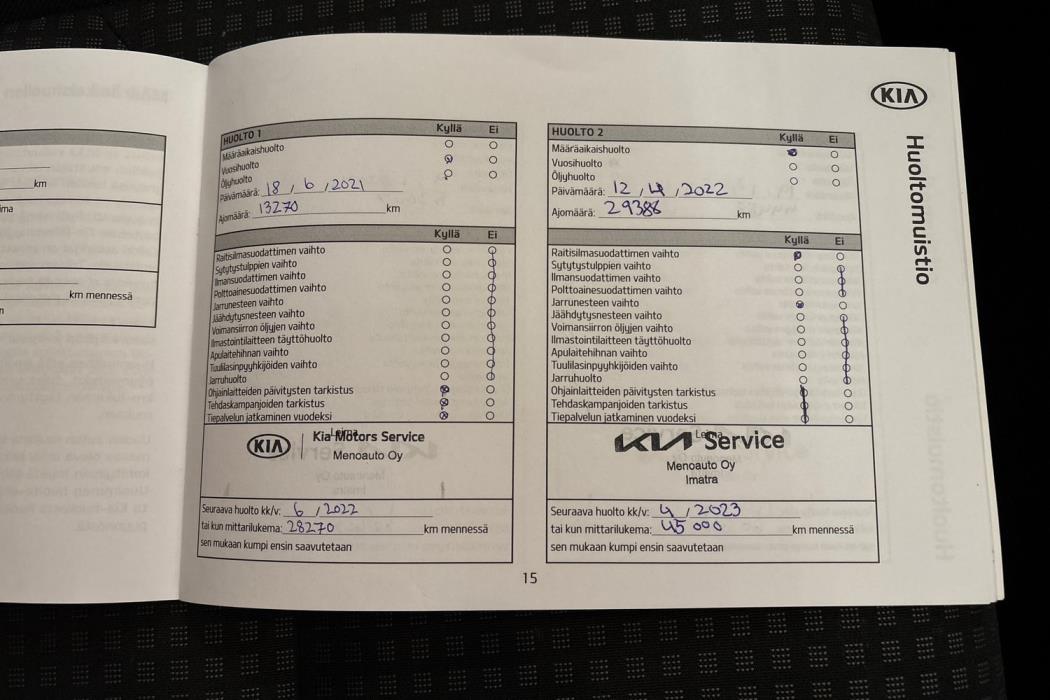 KIA
Huoltomuistio
km
km mennessä
HUOLTO 1 Kyllä Ei
Määräaikaishuolto
Vuosihuolto
Öljyhuolto
Päivämäärä: 18 / 6 / 2021
Ajomäärä: 13270 km
Kyllä Ei
Raitisilmasuodattimen vaihto
Sytytystulppien vaihto
Ilmansuodattimen vaihto
Polttoainesuodattimen vaihto
Jarrunesteen vaihto
Jäähdytysnesteen vaihto
Voimansiirron öljyjen vaihto
Ilmastointilaitteen täyttöhuolto
Apulaitehihnan vaihto
Tuulilasinpyyhkijöiden vaihto
Jarruhuolto
Ohjainlaitteiden päivitysten tarkistus
Tehdaskampanjoiden tarkistus
Tiepalvelun jatkaminen vuodeksi
Leima
KIA Kia Motors Service
Menoauto Oy
Seuraava huolto kk/v: 6 / 2022
tai kun mittarilukema: 28270 km mennessä
sen mukaan kumpi ensin saavutetaan
HUOLTO 2 Kyllä Ei
Määräaikaishuolto
Vuosihuolto
Öljyhuolto
Päivämäärä: 12 / 4 / 2022
Ajomäärä: 29386 km
Kyllä Ei
Raitisilmasuodattimen vaihto
Sytytystulppien vaihto
Ilmansuodattimen vaihto
Polttoainesuodattimen vaihto
Jarrunesteen vaihto
Jäähdytysnesteen vaihto
Voimansiirron öljyjen vaihto
Ilmastointilaitteen täyttöhuolto
Apulaitehihnan vaihto
Tuulilasinpyyhkijöiden vaihto
Jarruhuolto
Ohjainlaitteiden päivitysten tarkistus
Tehdaskampanjoiden tarkistus
Tiepalvelun jatkaminen vuodeksi
Leima
KIA Service
Menoauto Oy
Imatra
Seuraava huolto kk/v: 4 / 2023
tai kun mittarilukema: 45000 km mennessä
sen mukaan kumpi ensin saavutetaan
15